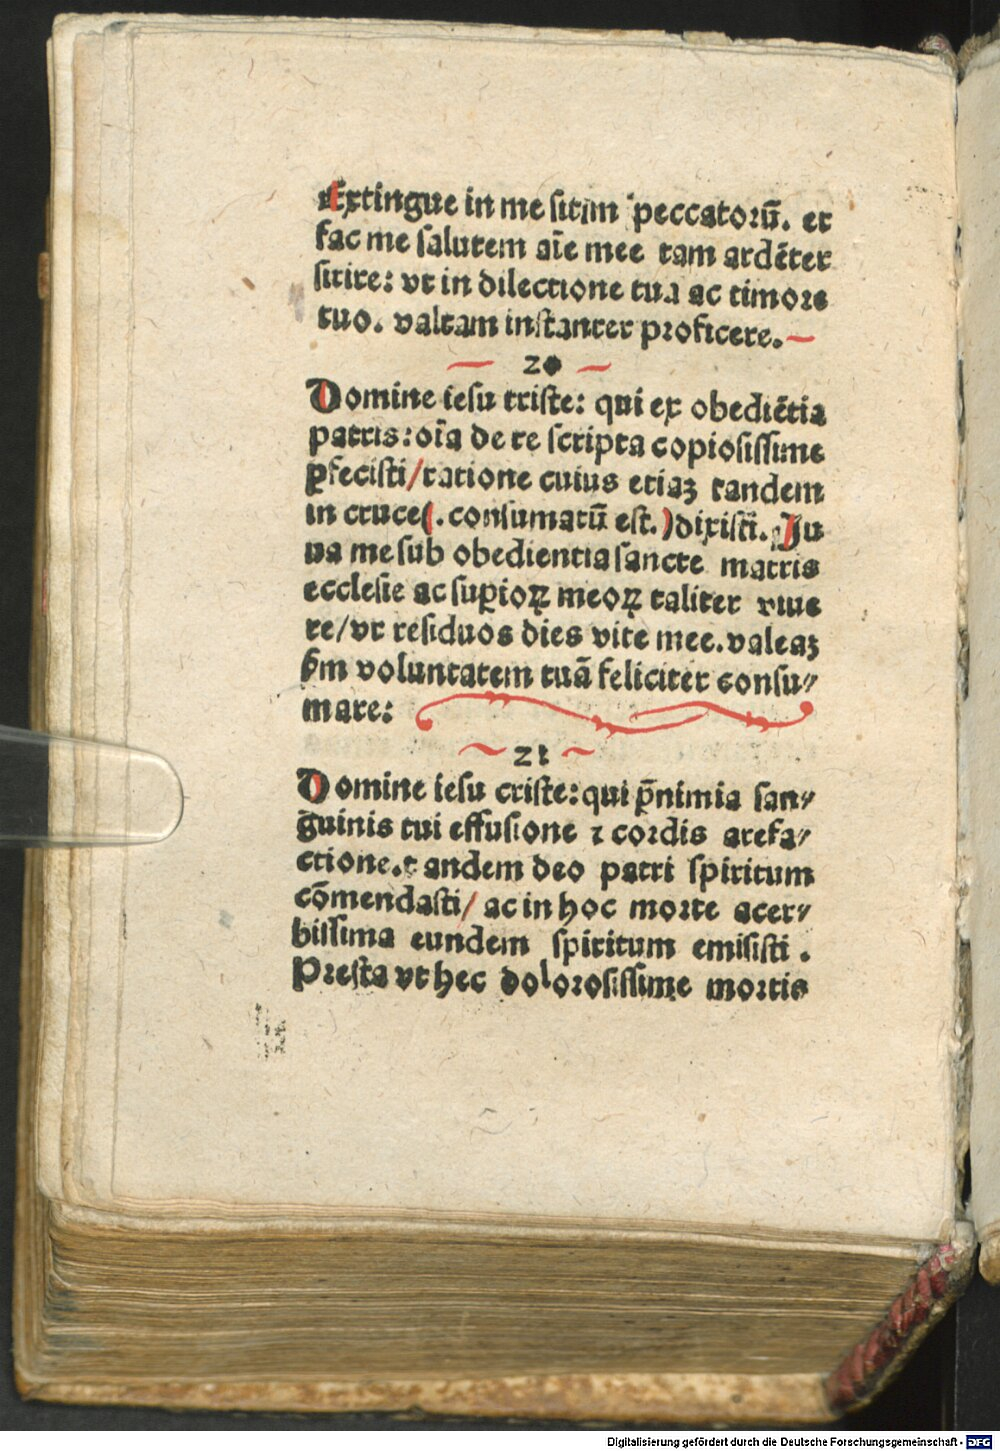 Extingue in me sitim peccatorū. et
fac me salutem aīe mee tam ardēter
sitire: vt in dilectione tua ac timore
tuo. valeam instanter proficere.
20
Domine iesu criste: qui ex obediētia
patris: oīa de te scripta copiosissime
ꝑfecisti/ratione cuius etiaꝫ tandem
in cruce(.consumatū est.)dixisti. Ju
ua me sub obedientia sancte matris
ecclesie ac suꝑioꝝ meoꝝ taliter viue
re/vt residuos dies vite mee.valeaꝫ
ẜm voluntatem tuā feliciter consu⸗
mare:
21
Domine iesu criste: qui p̄nimia san⸗
guinis tui effusione ⁊ cordis arefa⸗
ctione.t andem deo patri spiritum
cōmendasti/ ac in hoc morte acer⸗
bissima eundem spiritum emisisti.
Presta vt hec dolorosissime mortis
Digitalisierung gefördert durch die Deutsche Forschungsgemeinschaft - DFG